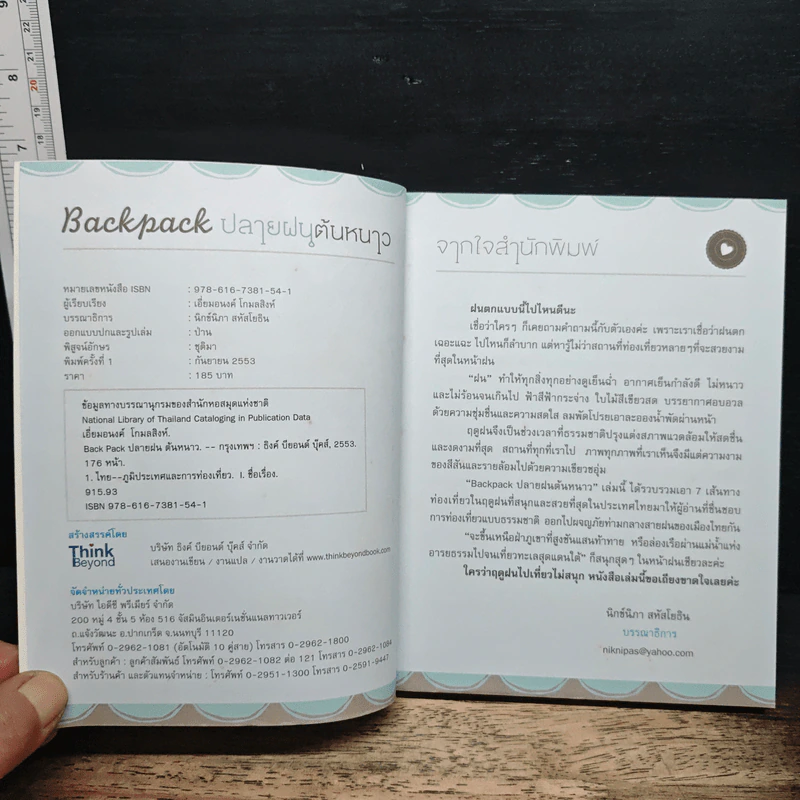 Backpack ปลายฝนต้นหนาว
หมายเลขหนังสือ ISBN : 978-616-7381-54-1
ผู้เรียบเรียง : เอี่ยมอนงค์ โกมลสิงห์
บรรณาธิการ : นิกข์นิภา สหัสโยธิน
ออกแบบปกและรูปเล่ม : ป่าน
พิสูจน์อักษร : ชุติมา
พิมพ์ครั้งที่ 1 : กันยายน 2553
ราคา : 185 บาท
ข้อมูลทางบรรณานุกรมของสำนักหอสมุดแห่งชาติ
National Library of Thailand Cataloging in Publication Data
เอี่ยมอนงค์ โกมลสิงห์.
Back Pack ปลายฝน ต้นหนาว. -- กรุงเทพฯ : ธิงค์ บียอนด์ บุ๊คส์, 2553.
176 หน้า.
1. ไทย--ภูมิประเทศและการท่องเที่ยว. I. ชื่อเรื่อง.
915.93
ISBN 978-616-7381-54-1
สร้างสรรค์โดย
Think Beyond
บริษัท ธิงค์ บียอนด์ บุ๊คส์ จำกัด
เสนองานเขียน / งานแปล / งานวาดได้ที่ www.thinkbeyondbook.com
จัดจำหน่ายทั่วประเทศโดย
บริษัท ไอดีซี พรีเมียร์ จำกัด
200 หมู่ 4 ชั้น 5 ห้อง 516 จัสมินอินเตอร์เนชั่นแนลทาวเวอร์
ถ.แจ้งวัฒนะ อ.ปากเกร็ด จ.นนทบุรี 11120
โทรศัพท์ 0-2962-1081 (อัตโนมัติ 10 คู่สาย) โทรสาร 0-2962-1084
สำหรับลูกค้า : ลูกค้าสัมพันธ์ โทรศัพท์ 0-2962-1082 ต่อ 121 โทรสาร 0-2962-1084
สำหรับร้านค้า และตัวแทนจำหน่าย : โทรศัพท์ 0-2951-1300 โทรสาร 0-2591-9447
จากใจสำนักพิมพ์
ฝนตกแบบนี้ไปไหนดีนะ
เชื่อว่าใครๆ ก็เคยถามคำถามนี้กับตัวเองค่ะ เพราะเราเชื่อว่าฝนตก
เฉอะแฉะ ไปไหนก็ลำบาก แต่หารู้ไม่ว่าสถานที่ท่องเที่ยวหลายๆที่จะสวยงาม
ที่สุดในหน้าฝน
"ฝน" ทำให้ทุกสิ่งทุกอย่างดูเย็นฉ่ำ อากาศเย็นกำลังดี ไม่หนาว
และไม่ร้อนจนเกินไป ฟ้าสีฟ้ากระจ่าง ใบไม้สีเขียวสด บรรยากาศอบอวล
ด้วยความชุ่มชื่นและความสดใส ลมพัดโปรยเอาละอองน้ำพัดผ่านหน้า
ฤดูฝนจึงเป็นช่วงเวลาที่ธรรมชาติปรุงแต่งสภาพแวดล้อมให้สดชื่น
และงดงามที่สุด สถานที่ทุกที่เราไป ภาพทุกภาพที่เราเห็นจึงมีแต่ความงาม
ของสีสันและรายล้อมไปด้วยความเขียวชอุ่ม
"Backpack ปลายฝนต้นหนาว" เล่มนี้ ได้รวบรวมเอา 7 เส้นทาง
ท่องเที่ยวในฤดูฝนที่สนุกและสวยที่สุดในประเทศไทยมาให้ผู้อ่านที่ชื่นชอบ
การท่องเที่ยวแบบธรรมชาติ ออกไปผจญภัยท่ามกลางสายฝนของเมืองไทยกัน
"จะขึ้นเหนือฝ่าภูเขาที่สูงชันแสนท้าทาย หรือล่องเรือผ่านแม่น้ำแห่ง
อารยธรรมไปจนเที่ยวทะเลสุดแดนใต้" ก็สนุกสุดๆ ในหน้าฝนเชียวละค่ะ
ใครว่าฤดูฝนไปเที่ยวไม่สนุก หนังสือเล่มนี้ขอเถียงขาดใจเลยค่ะ
นิกข์นิภา สหัสโยธิน
บรรณาธิการ
niknipas@yahoo.com